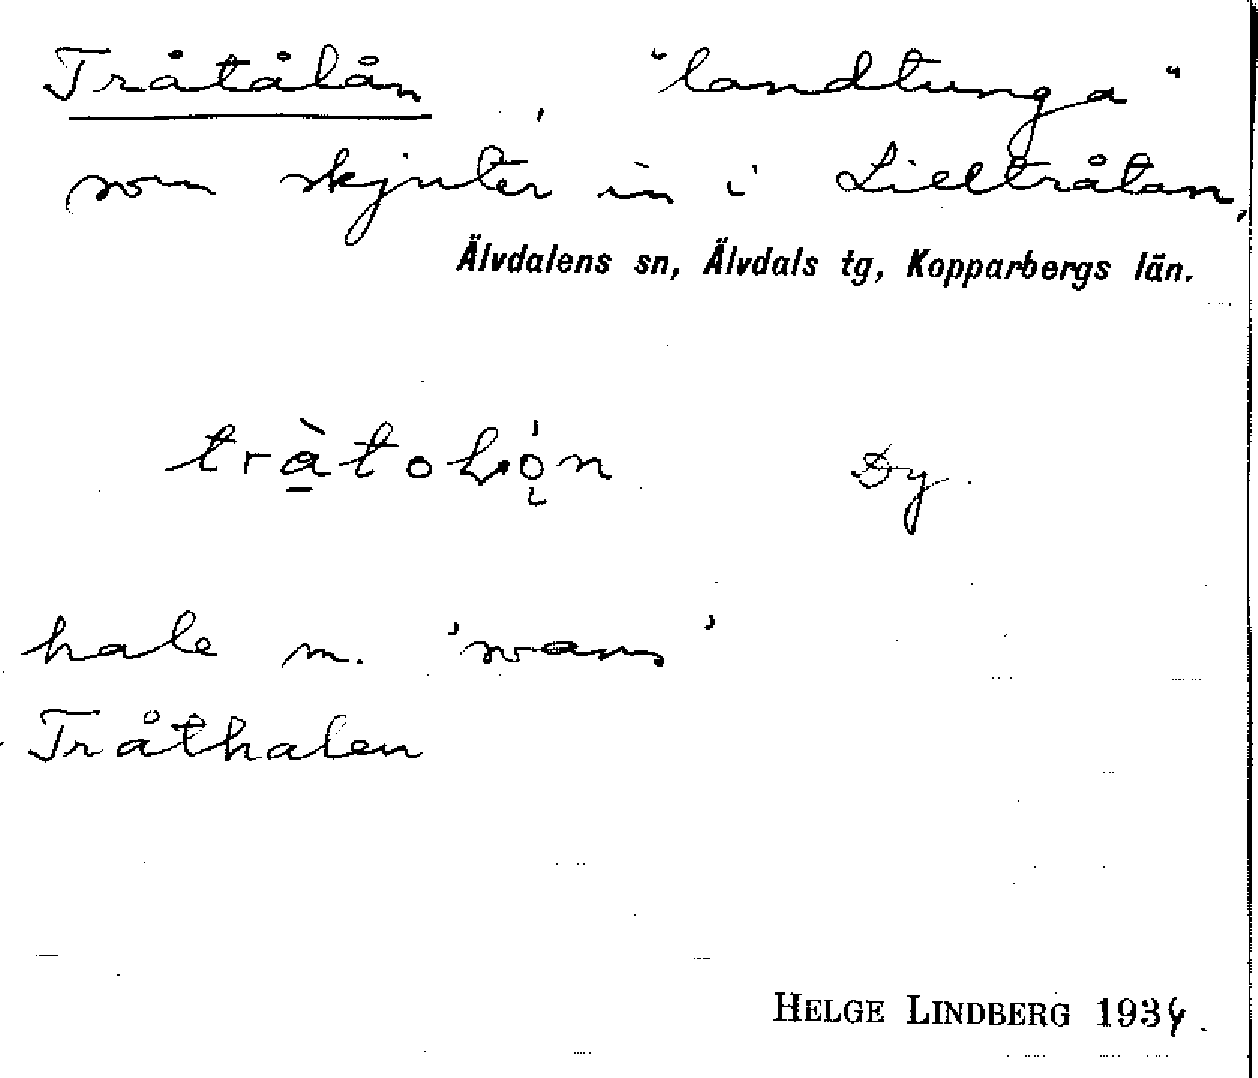 Tråtålån, "landtunga"
som skjuter in i Lilltråtan,
Älvdalens sn, Älvdals tg, Kopparbergs län.
Dy.
hale m. 'svans'
Tråthalen
HELGE LINDBERG 1934.